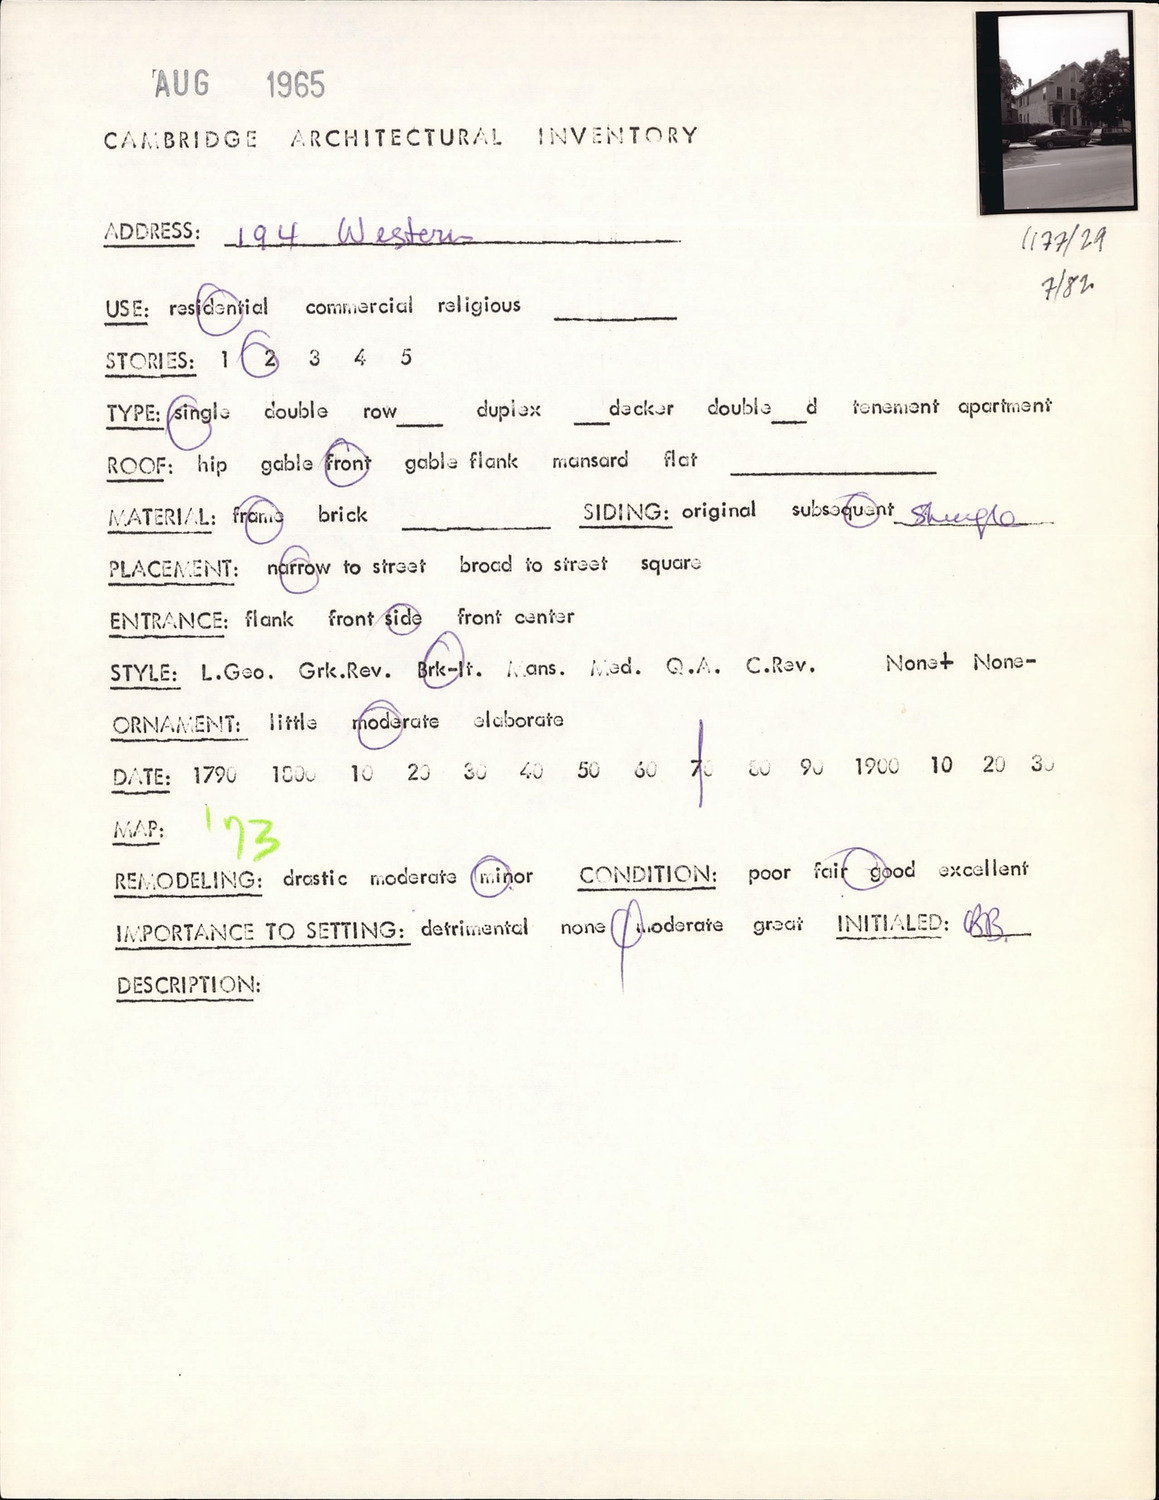 AUG 1965
CAMBRIDGE ARCHITECTURAL INVENTORY
ADDRESS: 194 Western
1177/29
7/82
USE: residential commercial religious
STORIES: 1 2 3 4 5
TYPE: single double row___ duplex ___decker double___d tenement apartment
ROOF: hip gable front gable flank mansard flat
MATERIAL: frame brick ___ SIDING: original subsequent Shingle
PLACEMENT: narrow to street broad to street square
ENTRANCE: flank front side front center
STYLE: L.Geo. Grk.Rev. Brk-It. Mans. Med. Q.A. C.Rev. None+ None-
ORNAMENT: little moderate elaborate
DATE: 1790 1800 10 20 30 40 50 60 70 80 90 1900 10 20 30
MAP: '73
REMODELING: drastic moderate minor CONDITION: poor fair good excellent
IMPORTANCE TO SETTING: detrimental none moderate great INITIALED: BB.
DESCRIPTION: